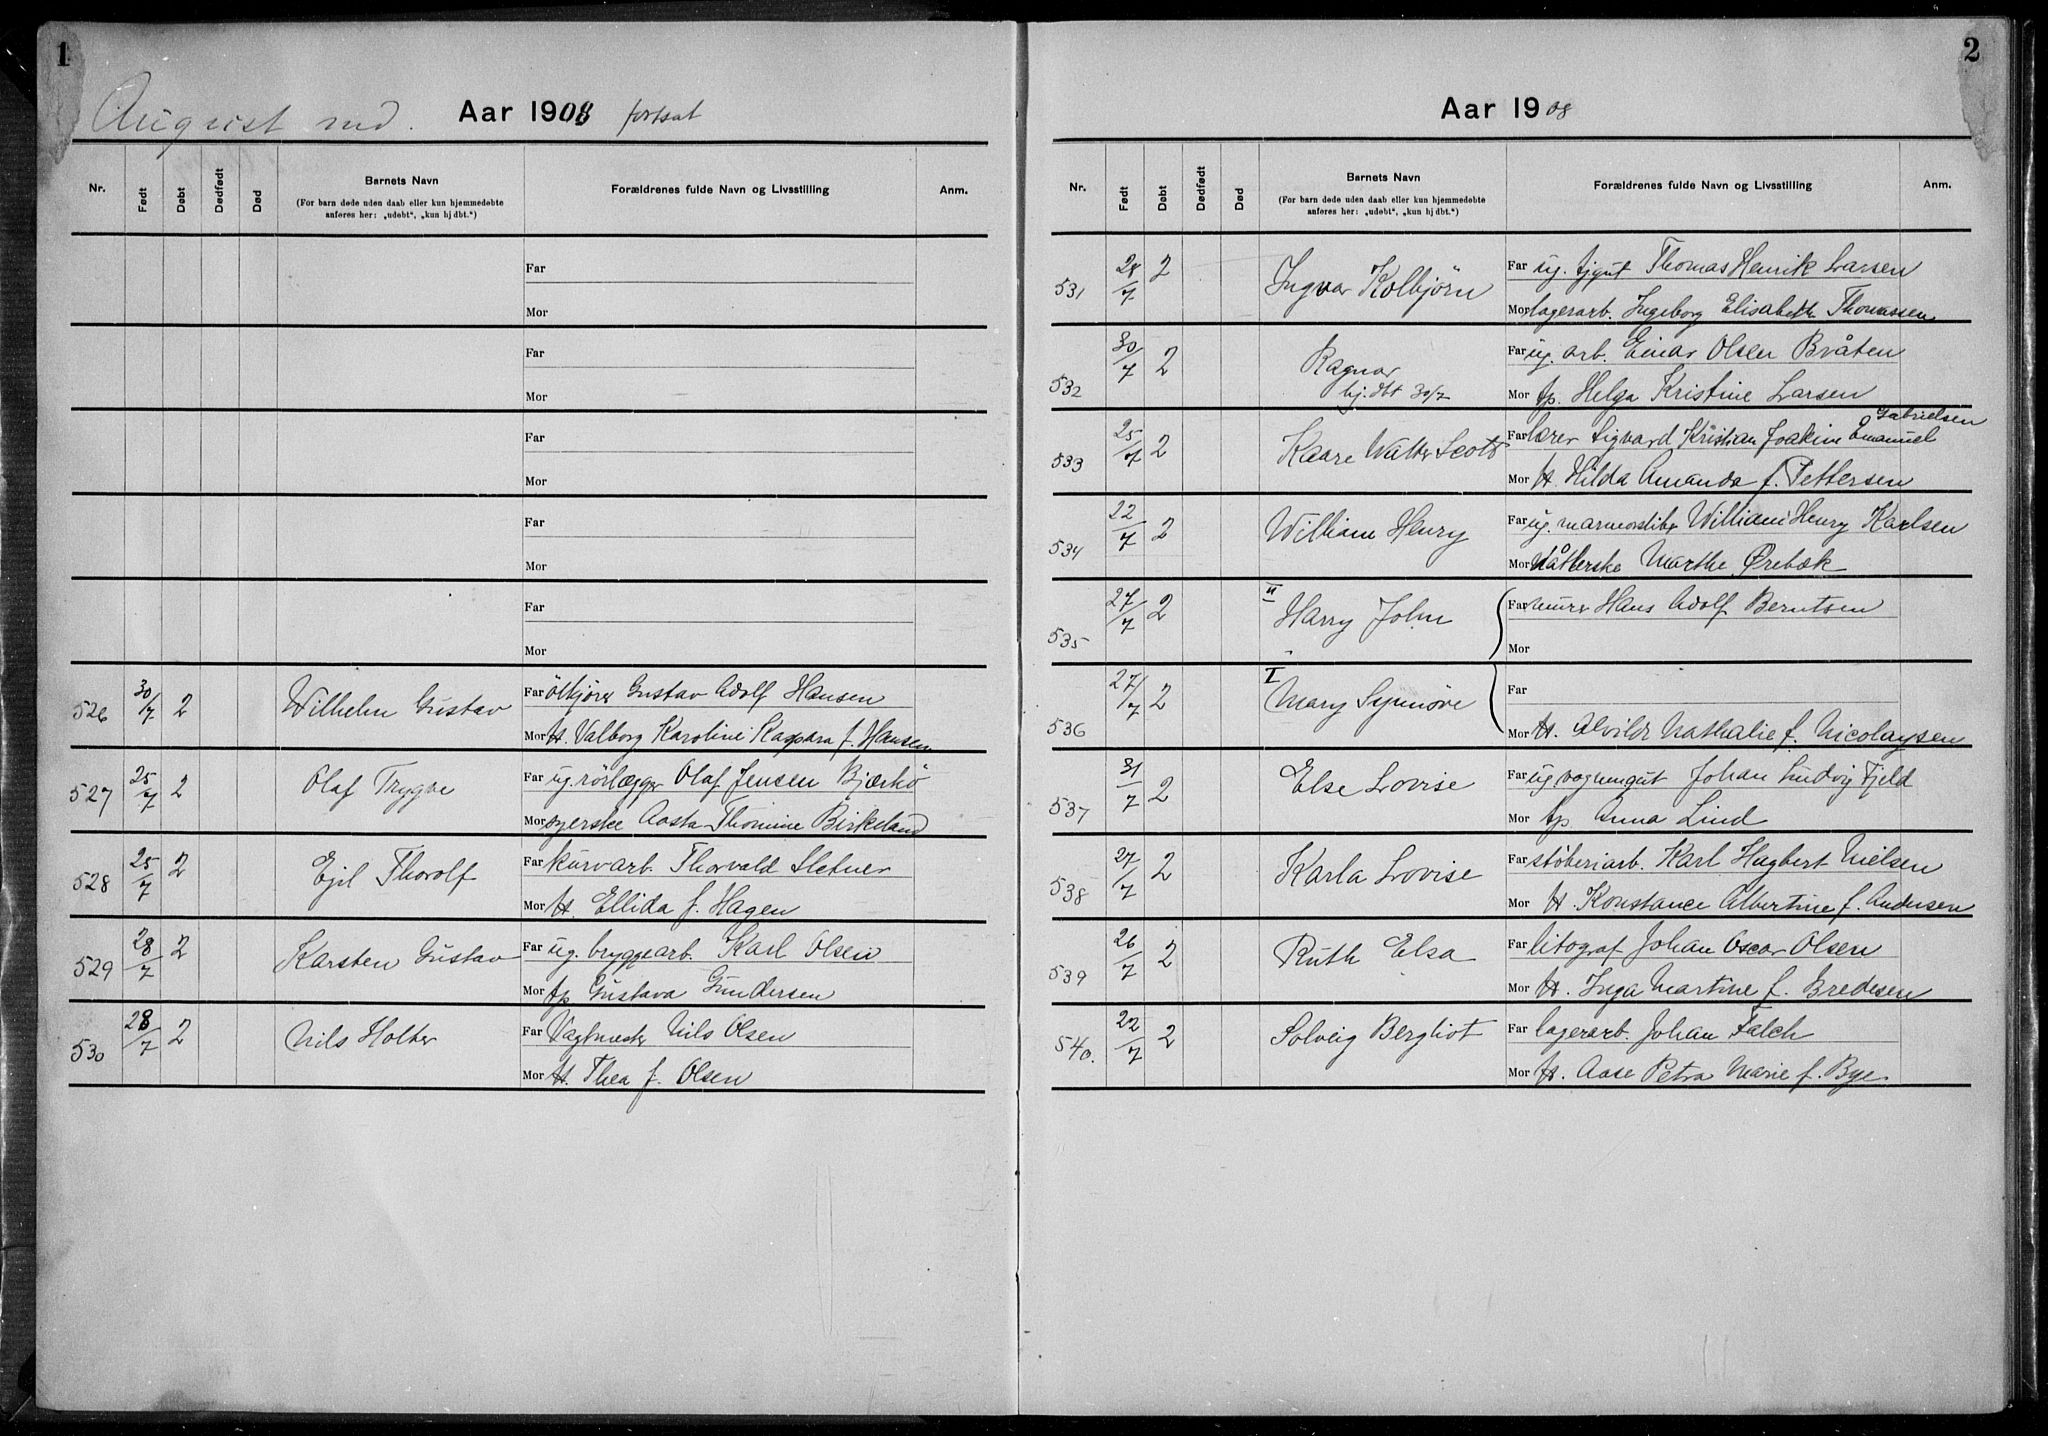 1
August md. Aar 1908 fortsat
Nr. Født Døbt Dødfødt Død Barnets Navn Forældrenes fulde Navn og Livsstilling Anm.
(For barn døde uden daab eller kun hjemmedøbte
anføres her: „udøbt“, „kun hj dbt.“)
Far
Mor
Far
Mor
Far
Mor
Far
Mor
Far
Mor
526 30/7 2 Wilhelm Gustav Far ölkjører Gustav Adolf Hansen
Mor H. Valborg Karoline Kaspara f. Hansen
527 25/7 2 Olaf Trygve Far ug. rörlægger Olaf Jensen Bjerkö
Mor syerske Aasta Thomine Birkeland
528 25/7 2 Ejil Thorolf Far kurvarb. Thorvald Sletner
Mor H. Ellida f. Hagen
529 28/7 2 Karsten Gustav Far ug. bryggearb. Karl Olsen
Mor tp Gustava Gundersen
530 28/7 2 Nils Holter Far Vagtmester Nils Olsen
Mor H. Thea f. Olsen
2
Aar 1908
Nr. Født Døbt Dødfødt Død Barnets Navn Forældrenes fulde Navn og Livsstilling Anm.
(For barn døde uden daab eller kun hjemmedøbte
anføres her: „udøbt“, „kun hj dbt.“)
531 28/7 2 Ingvar Kolbjörn Far ug. tjgut Thomas Henrik Larsen
Mor lagerarb. Ingeborg Elisabeth Thomassen
532 30/7 2 Ragnar Far ug. arb. Einar Olsen Bråten
hj. dbt 30/7 Mor tp. Helga Kristine Larsen
Gabrielsen
533 25/7 2 Kaare Walter Scott Far lærer Sigvard Kristian Joakim Emanuel
Mor H. Hilda Amanda f. Pettersen
534 22/7 2 William Henry Far ug. marmorsliber William Henry Karlsen
Mor Våtterske Marthe Ørebæk
535 27/7 2 II Harry John Far murer Hans Adolf Berntsen
Mor
536 27/7 2 I Mary Synnøve Far
Mor H. Alvilde Nathalie f. Nicolaysen
537 31/7 2 Else Lovise Far ug vognmgut Johan Ludvig Fjeld
Mor tp. Anna Lind
538 27/7 2 Karla Lovise Far støberiarb. Karl Hagbert Nielsen
Mor H. Konstance Albertine f. Andersen
539 26/7 2 Ruth Elsa Far litograf Johan Oscar Olsen
Mor H. Inga Martine f. Bredesen
540. 22/7 2 Solveig Bergliot Far lagerarb. Johan Falch
Mor H. Aase Petra Marie f. Bye